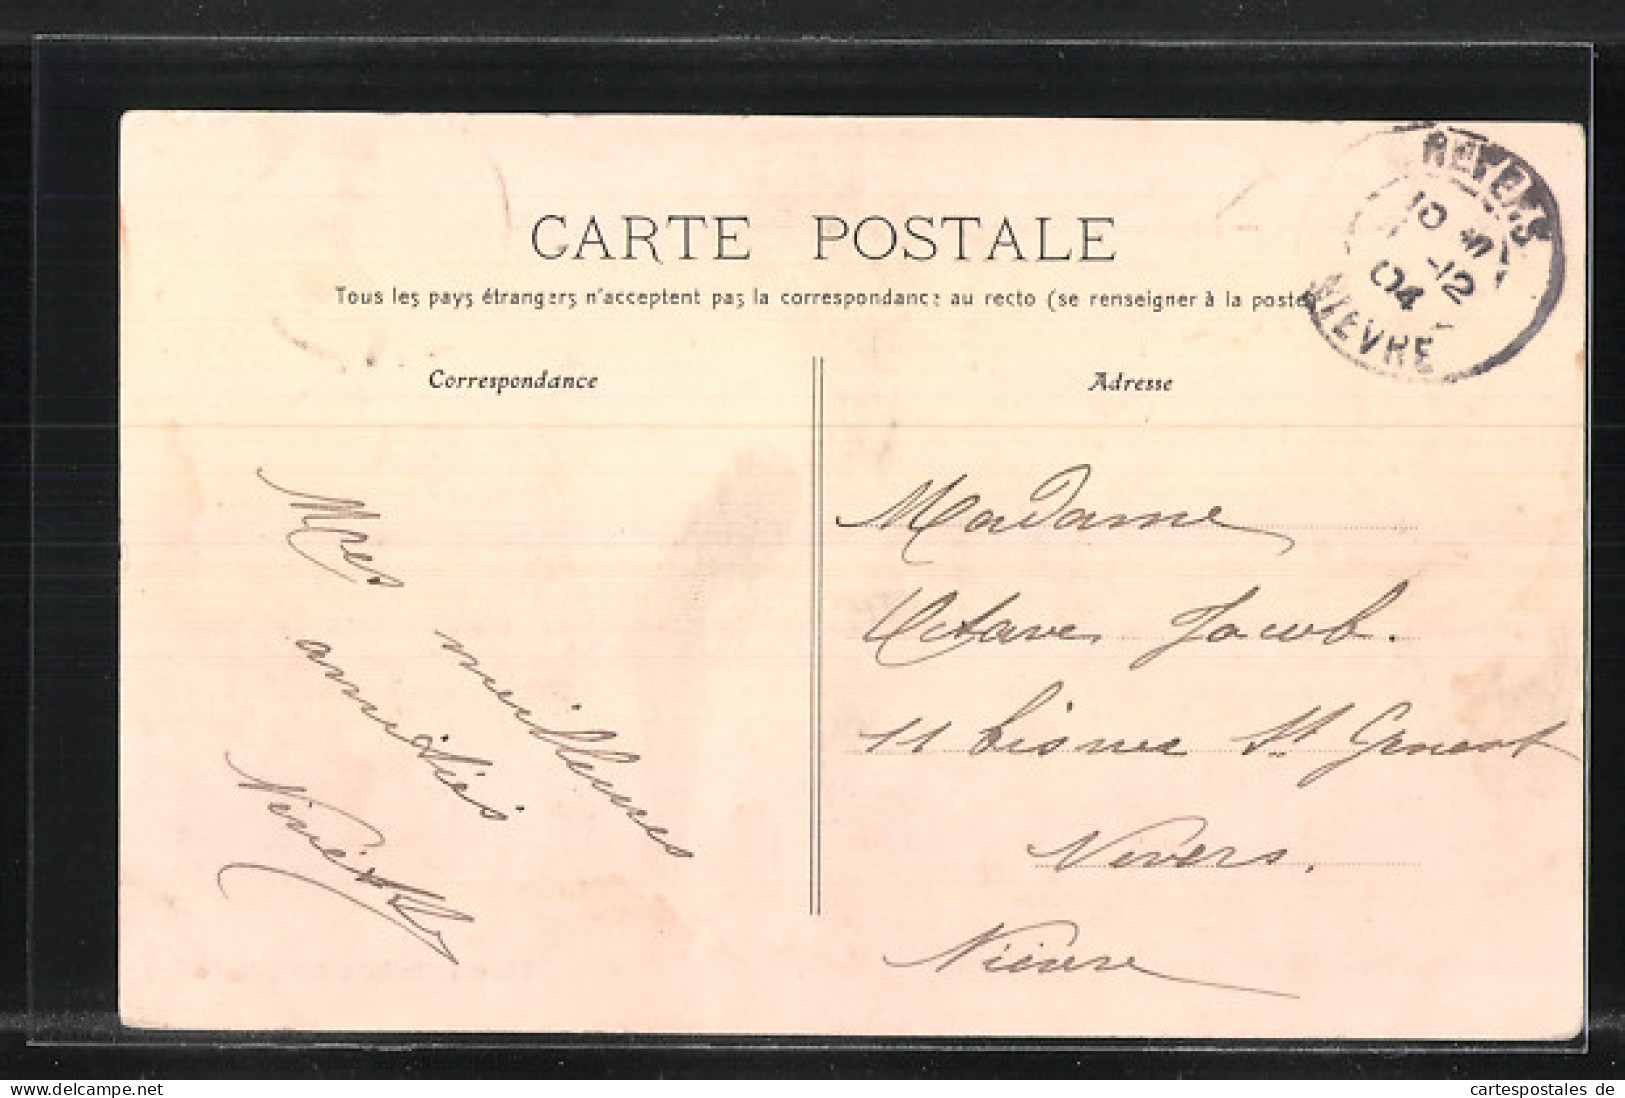 CARTE POSTALE
Tous les pays étrangers n'acceptent pas la correspondance au recto (se renseigner à la poste
NEVERS
10
-12
04
NIEVRE
Correspondance
Mes
meilleures
amitiés
Adresse
Madame
Octave Jacob.
11 bis rue St Genest
Nevers.
Nièvre
delcampe.net
cartespostales de